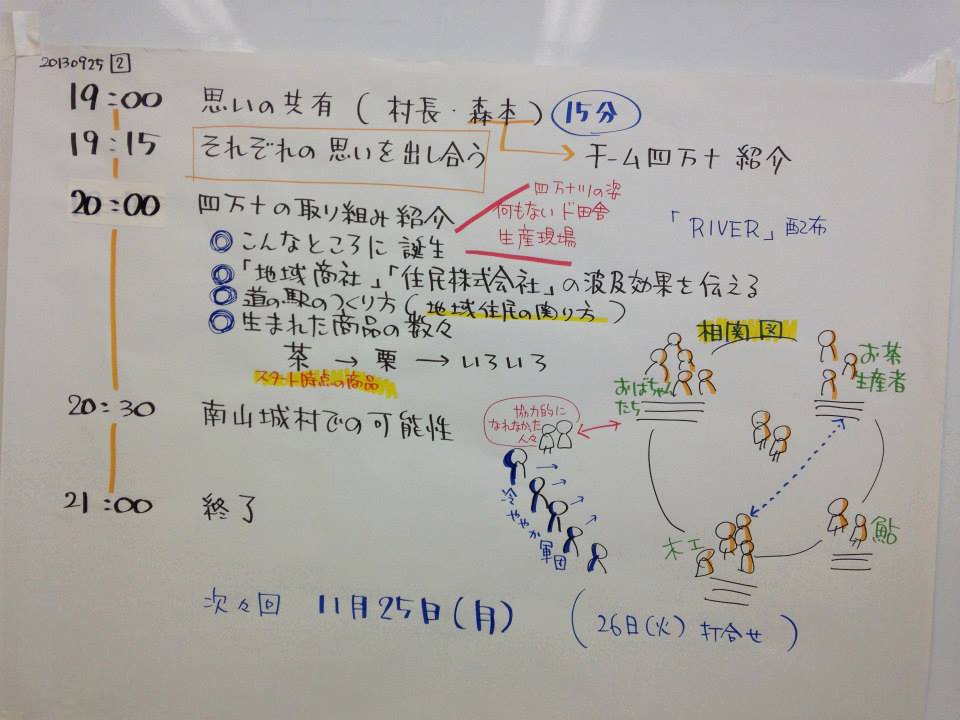 20130925 2
19:00 思いの共有 (村長・森本) 15分
19:15 それぞれの思いを出し合う
チーム四万十 紹介
20:00 四万十の取り組み紹介
四万十川の姿
何もない ド田舎
生産現場
「RIVER」配布
◎ こんなところに 誕生
◎ 「地域商社」「住民株式会社」の波及効果を伝える
◎ 道の駅のつくり方 (地域住民の関り方)
◎ 生まれた商品の数々
茶 → 栗 → いろいろ
スタート時点の商品
相関図
おばちゃん
たち
お茶
生産者
木工
鮎
協力的に
なれなかった
人々
冷ややか軍団
20:30 南山城村での可能性
21:00 終了
次々回 11月25日(月) (26日(火) 打合せ)